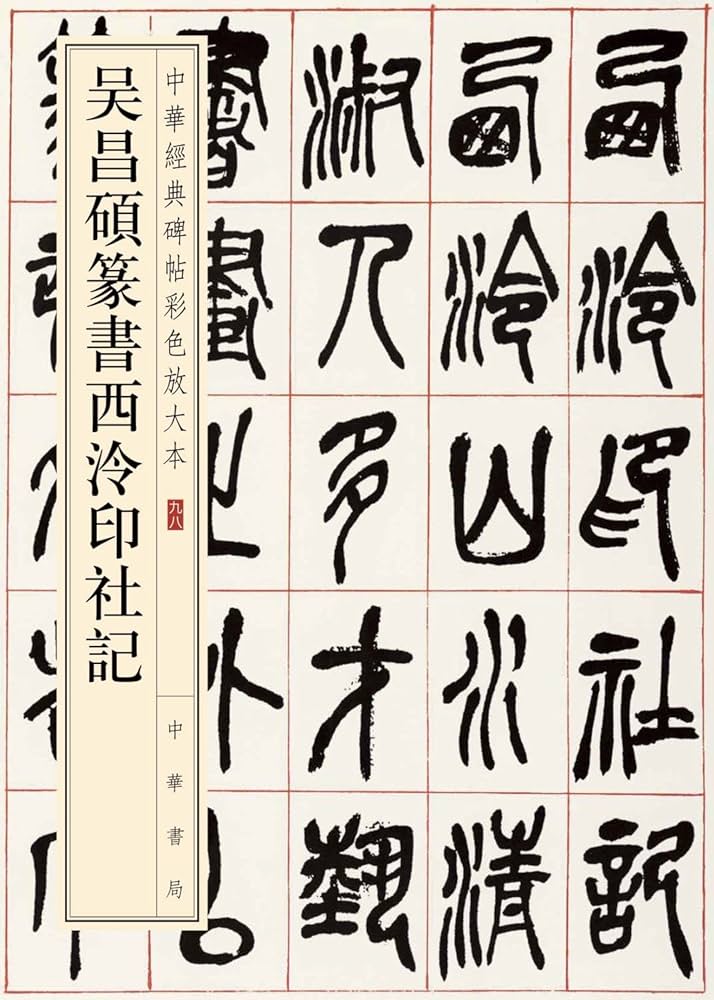 西泠印社記
西泠山水清
淑人多才藝
書畫之外以
中華經典碑帖彩色放大本
九八
中華書局
吴昌碩篆書西泠印社記